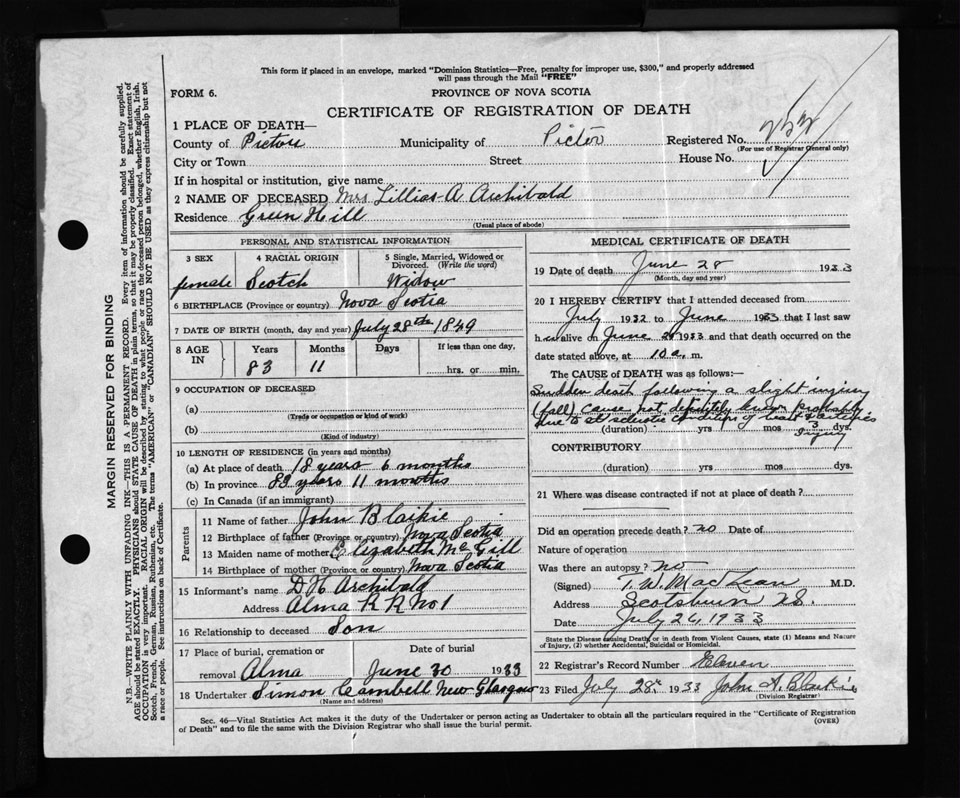 This form if placed in an envelope, marked "Dominion Statistics—Free, penalty for improper use, $300," and properly addressed
will pass through the Mail "FREE"
FORM 6. PROVINCE OF NOVA SCOTIA
CERTIFICATE OF REGISTRATION OF DEATH
1 PLACE OF DEATH—
County of Pictou Municipality of Pictou Registered No.
(For use of Registrar General only)
City or Town Street House No.
If in hospital or institution, give name
2 NAME OF DECEASED Mrs Lillias A. Archibald
Residence Green Hill
(Usual place of abode)
PERSONAL AND STATISTICAL INFORMATION
3 SEX 4 RACIAL ORIGIN 5 Single, Married, Widowed or Divorced. (Write the word)
female Scotch Widow
6 BIRTHPLACE (Province or country) Nova Scotia
7 DATE OF BIRTH (month, day and year) July 28th 1849
8 AGE IN Years Months Days If less than one day,
83 11 hrs. or min.
9 OCCUPATION OF DECEASED
(a)
(Trade or occupation or kind of work)
(b)
(Kind of industry)
10 LENGTH OF RESIDENCE (in years and months)
(a) At place of death 18 years 6 months
(b) In province 83 years 11 months
(c) In Canada (if an immigrant)
Parents
11 Name of father John Blaikie
12 Birthplace of father (Province or country) Nova Scotia
13 Maiden name of mother Elizabeth McGill
14 Birthplace of mother (Province or country) Nova Scotia
15 Informant's name D H Archibald
Address Alma R R No 1
16 Relationship to deceased Son
17 Place of burial, cremation or Date of burial
removal Alma June 30 1933
18 Undertaker Simon Cambell New Glasgow
(Name and address)
MEDICAL CERTIFICATE OF DEATH
19 Date of death June 28 1933
(Month, day and year)
20 I HEREBY CERTIFY that I attended deceased from
July 1932 to June 1933 that I last saw
h alive on June 1933 and that death occurred on the
date stated above, at 10 a. m.
The CAUSE of DEATH was as follows:
Sudden death following a slight injury
(fall) cause not definitely known probably
due to condition of heart & arteries
(duration) yrs mos 3 dys.
injury
CONTRIBUTORY
(duration) yrs mos dys.
21 Where was disease contracted if not at place of death?
Did an operation precede death? no Date of
Nature of operation
Was there an autopsy? no
(Signed) T. W. MacLean M.D.
Address Scotsburn N.S.
Date July 26, 1933
State the Disease causing Death, or in death from Violent Causes, state (1) Means and Nature
of Injury, (2) whether Accidental, Suicidal or Homicidal.
22 Registrar's Record Number Eleven
23 Filed July 28th 1933 John A. Blaikie
(Division Registrar)
Sec. 46—Vital Statistics Act makes it the duty of the Undertaker or person acting as Undertaker to obtain all the particulars required in the "Certificate of Registration
of Death" and to file the same with the Division Registrar who shall issue the burial permit. (OVER)
MARGIN RESERVED FOR BINDING
N.B.—WRITE PLAINLY WITH UNFADING INK—THIS IS A PERMANENT RECORD. Every item of information should be carefully supplied.
AGE should be stated EXACTLY. PHYSICIANS should STATE CAUSE OF DEATH in plain terms, so that it may be properly classified. Exact statement of
OCCUPATION is very important. RACIAL ORIGIN will be described by stating to what people or race the deceased person belonged, whether English, Irish,
Scotch, French, German, Russian, Ruthenian, etc. The terms "AMERICAN" or "CANADIAN" SHOULD NOT BE USED as they express citizenship but not
a race or people. See instructions on back of Certificate.